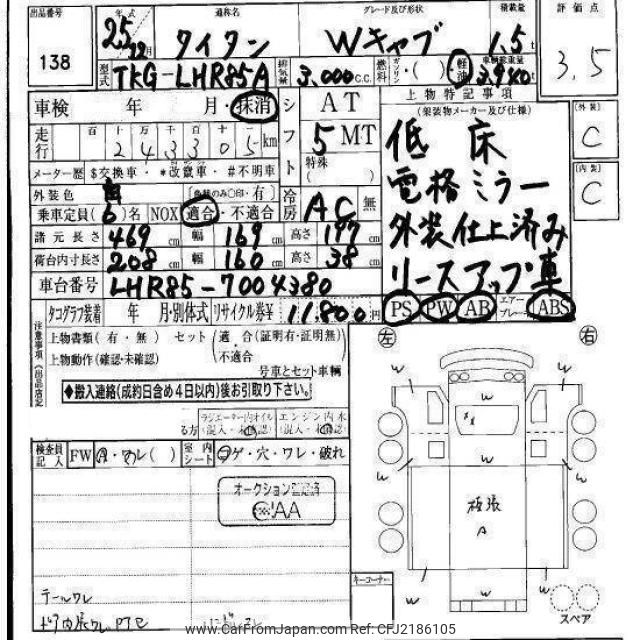 出品番号 年式 通称名 グレード及び形状 積載量 評価点
138 25年12月 タイタン Wキャブ 1.5t 3.5
型式 TKG-LHR85A 排気量 3,000c.c. 燃料 ガソリン・( ) 軽油 車輌総重量 3,940
車検 年 月・抹消 シフト AT
5MT
特殊( )
走行 百十万千百十 243305km
メーター歴 $交換車・*改竄車・#不明車
外装色 有 冷房 AC 無
乗車定員(6)名 NOX 適合・不適合
諸元長さ 469cm 幅 169cm 高さ 197cm
荷台内寸長さ 208cm 幅 160cm 高さ 38cm
車台番号 LHR85-7004380
タコグラフ装着 年 月・別体式 リサイクル券¥ 11,800円
上物特記事項
(架装物メーカー及び仕様)
低床
電格ミラー
外装仕上済み
リースアップ車
PS PW AB エアーブレーキ ABS
[外装]
C
[内装]
C
注意事項(出品店記
上物書類(有・無) セット 適合(証明有・証明無)
上物動作(確認・未確認) ・不適合
号車とセット車輌
◆搬入連絡(成約日含め4日以内)後お引取り下さい。
ラジエーター内オイル エンジン内水
(混入・未確認) (混入・未確認)
検査員記入 FW 室内シート コゲ・穴・ワレ・破れ
オークション
テールワレ
左 右
W W W
W W W
板張
A
W W W W
キーコーナー
スペア
www.CarFromJapan.com Ref: CFJ2186105